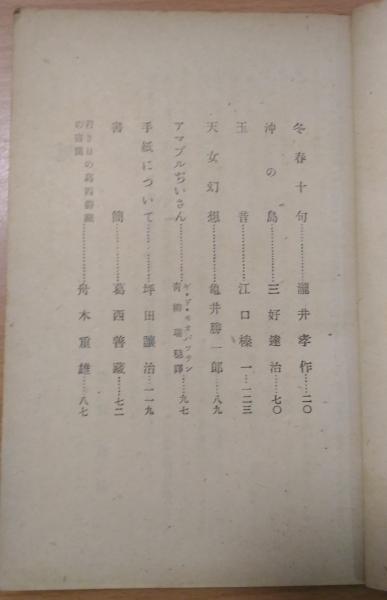 冬春十句……瀧井孝作…二〇
沖の島……三好達治…七〇
玉音……江口榛一…一二三
天女幻想……亀井勝一郎…八九
アマブルぢいさん……ギ・ド・モオパツサン
青柳瑞穂譯…九七
手紙について……坪田讓治…一一九
書簡……葛西善藏…七二
若き日の葛西善藏
の書簡……舟木重雄…八七